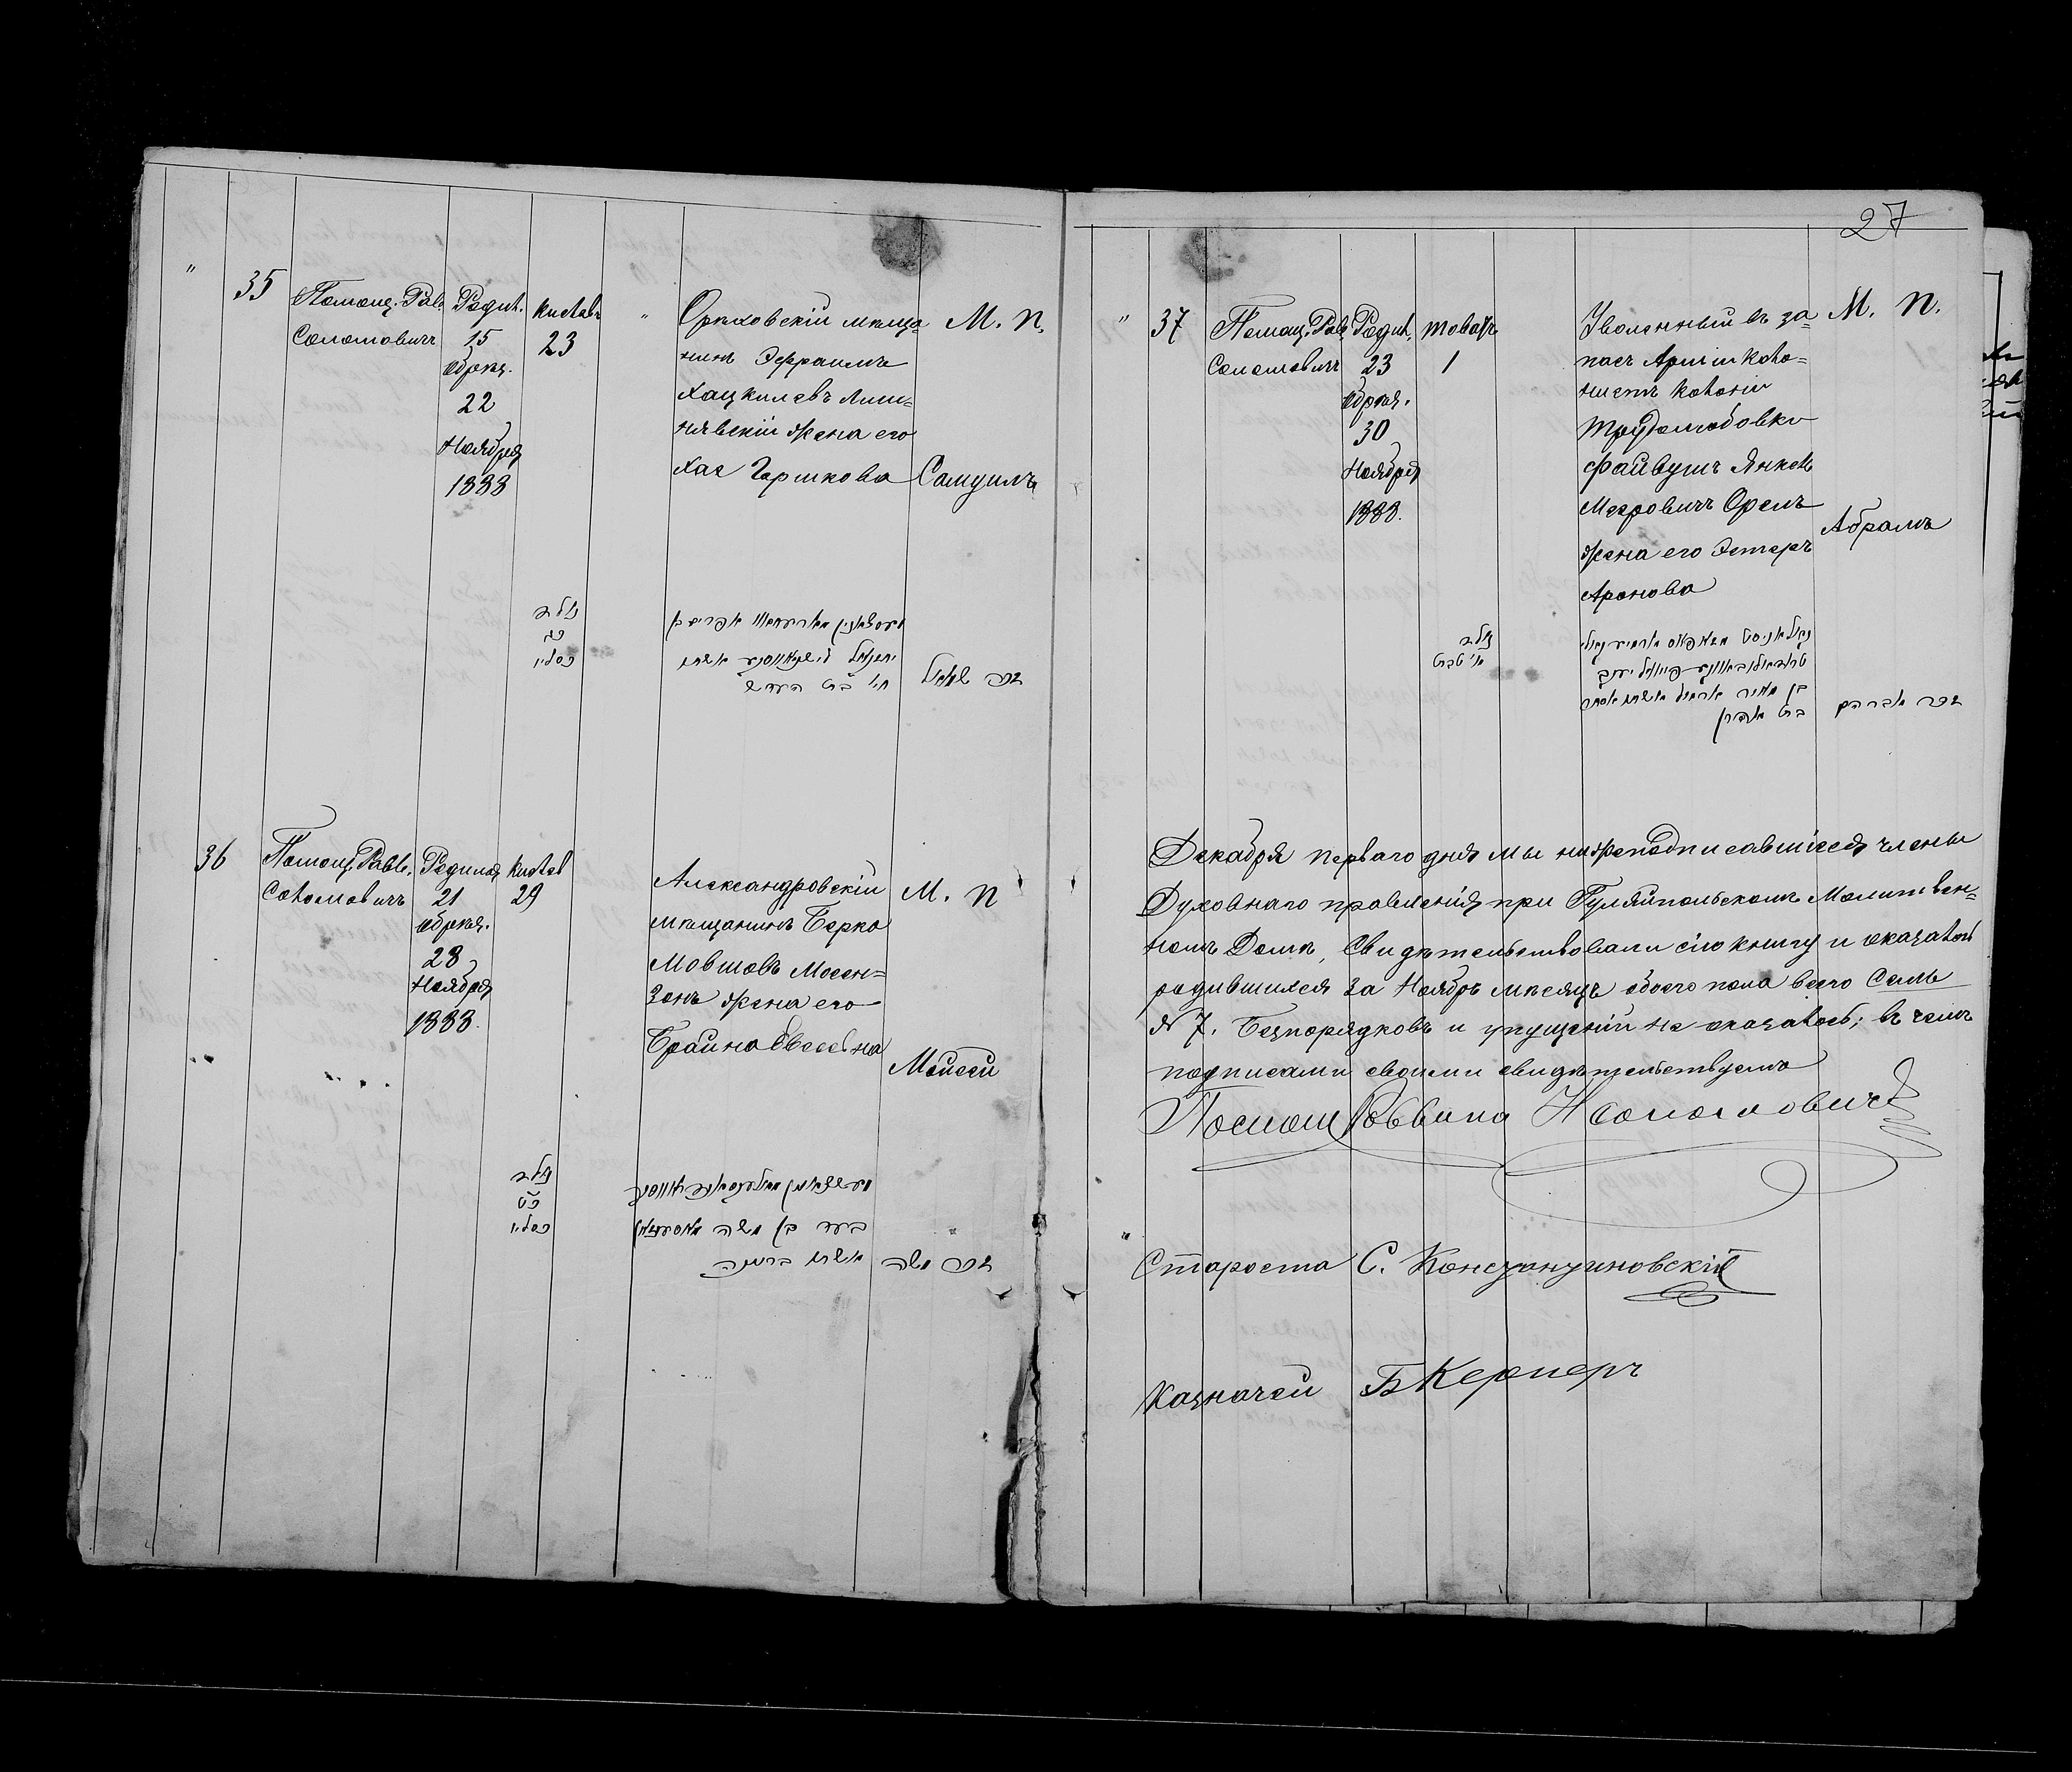 27
"
35
Помощ. Рав.
Соломовичъ
Родил.
15
обрѣз.
22
Ноября
1888
Кислевъ
23
"
Орѣховскій мѣща=
нинъ Эфраимъ
Хацкилевъ Лиш=
нявскій жена его
Хая Гершкова
М. П.
Самуилъ
נולד
כג
כסליו
יחזקאל
חי' בת
שמואל
36
Помощ. Равв.
Соломовичъ
Родился
21
обрѣз.
28
Ноября
1888.
Кислев
29
Александровскій
мѣщанинъ Берко
Мовшовъ Мосен=
зонъ жена его
Брайна
М. П
Моисей
נולד
כט
כסליו
בן משה
משה
"
37
Помощ. Рав.
Соломовичъ
Родил.
23
обрѣз.
30
Ноября
1888.
1
Уволенный въ за=
пасъ Арміи коло=
нистъ колоніи
Трудолюбовки
Файвушъ Янкель
Мееровичъ Орелъ
жена его Эстеръ
Аронова
М. П.
Абрамъ
נולד
א' טבת
בן מאיר
בת אהרן
אברהם
Декабря перваго дня мы нижеподписавшіеся члены
Духовнаго правленія при Гуляйпольскомъ Молитвен=
номъ Домѣ, свидѣтельствовали сію книгу и оказалось
родившихся за Ноябрь мѣсяцъ обоего пола всего семь
№ 7. Безпорядковъ и упущеній не оказалось; въ чемъ
подписами своими свидѣтельствуемъ
Помощ Раввина Н Соломовичъ
Староста С. Константиновскій
Казначей Б Кернеръ